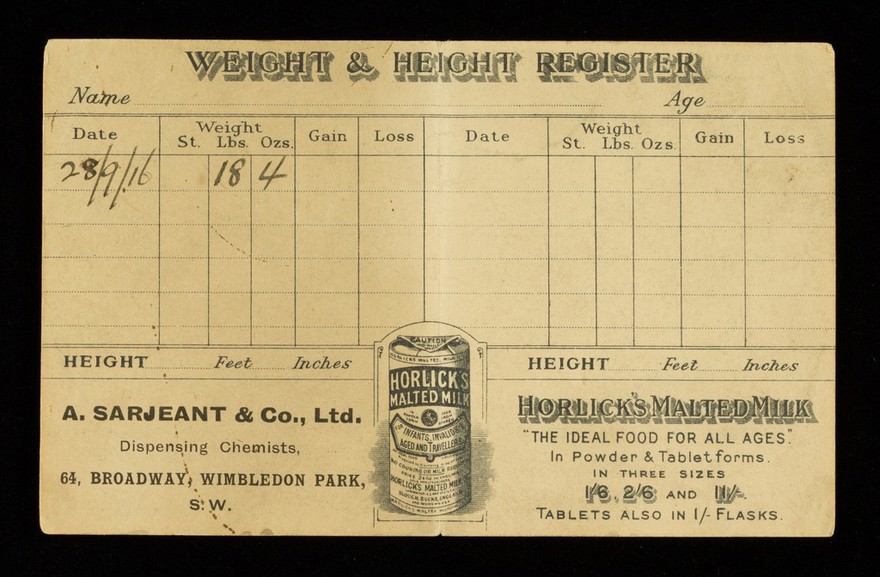 WEIGHT & HEIGHT REGISTER
Name Age
Date Weight St. Lbs. Ozs. Gain Loss Date Weight St. Lbs. Ozs. Gain Loss
28/9/16 18 4
HEIGHT Feet Inches HEIGHT Feet Inches
A. SARJEANT & Co., Ltd.
Dispensing Chemists,
64, BROADWAY, WIMBLEDON PARK,
S.W.
CAUTION
HORLICK'S
MALTED MILK
INFANTS, INVALIDS
AGED AND TRAVELLERS
HORLICK'S MALTED MILK
SLOUGH, BUCKS, ENGLAND
HORLICK'S MALTED MILK
"THE IDEAL FOOD FOR ALL AGES."
In Powder & Tablet forms.
IN THREE SIZES
1/6, 2/6 AND 11/-.
TABLETS ALSO IN 1/- FLASKS.